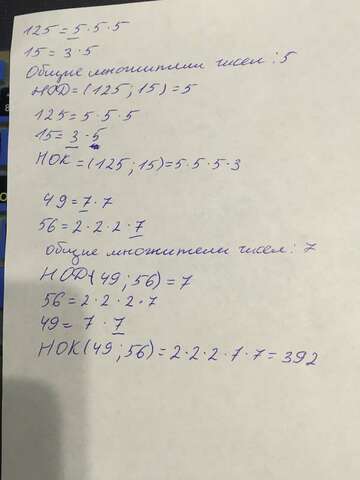 125 = 5 · 5 · 5
15 = 3 · 5
Общие множители чисел : 5
НОД = (125 ; 15) = 5
125 = 5 · 5 · 5
15 = 3 · 5
НОК = (125 ; 15) = 5 · 5 · 5 · 3
49 = 7 · 7
56 = 2 · 2 · 2 · 7
общие множители чисел : 7
НОД (49 ; 56) = 7
56 = 2 · 2 · 2 · 7
49 = 7 · 7
НОК (49 ; 56) = 2 · 2 · 2 · 7 · 7 = 392